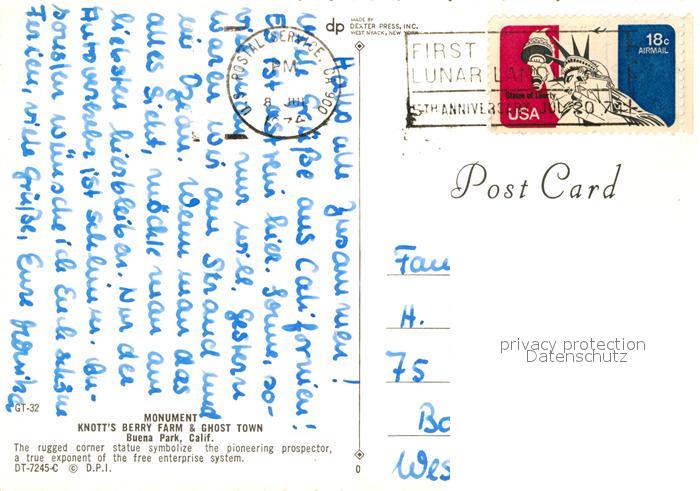 Hallo alle zusammen!
Viele Grüße aus Californien!
Es ist fast hier. Sonne, so-
viel man nur will. Gestern
waren wir am Strand und
in Ogden. Wenn man das
alles sieht, möchte man am
liebsten hierbleiben. Nur der
Autoverkehr ist schlimm. An-
sonsten wünsche ich Euch schöne
Ferien, viele Grüße, Eure Monika
dp MADE BY
DEXTER PRESS, INC.
WEST NYACK, NEW YORK
U.S. POSTAL SERVICE, CA 900
PM
8 JUL
1974
FIRST
LUNAR LAND
5TH ANNIVERSARY JUL 20 74
18c
AIRMAIL
Statue of Liberty
USA
Post Card
Fam
H.
75
Ba
Wes
privacy protection
Datenschutz
GT-32
MONUMENT
KNOTT'S BERRY FARM & GHOST TOWN
Buena Park, Calif.
The rugged corner statue symbolize the pioneering prospector,
a true exponent of the free enterprise system.
DT-7245-C © D.P.I.
0